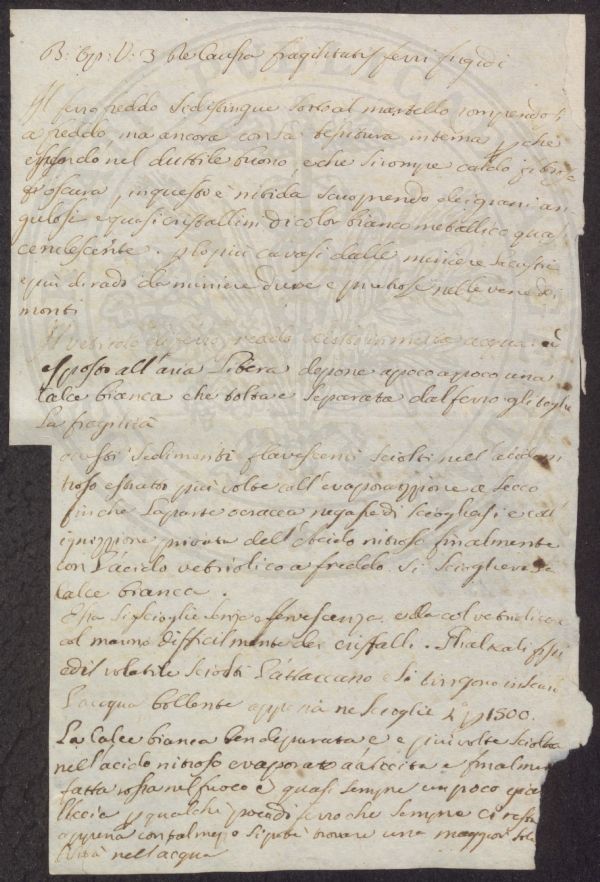 B: Op: V: 3 De Causa fragilitatis ferri frigidi
Il ferro freddo si distingue sotto al martello rompendosi
a freddo ma ancora con la tessitura interna p che
essendo nel duttile buono, e che si rompe caldo fibro
oscura, in questo è nitida scuoprendo dei grani an
gulosi e quasi cristallini di color bianco metallico qua
cerulescente. p lo più cavasi dalle miniere
e più di rado da miniere dure e pietrose nelle vene dei
monti
Il vetriolo di ferro freddo acqua
esposto all'aria Libera depone a poco a poco una
calce bianca che tolta e separata dal ferro gli toglie
La fragilità
questi sedimenti flavescenti sciolti nell'acido ni
troso estratto più volte coll'evaporazzione a secco
finche La parte ocracea negasse di sciogliersi e col
privata dell'acido nitroso finalmente
con l'acido vetriolico a freddo si scioglieva la
calce bianca.
Essa si scioglie senza effervescenza e da col vetriolico
col marino difficilmente dei cristalli. Gli alkali fissi
ed il volatile sciolti L'attaccano e si tingono
L'acqua bollente appena ne scioglie 1 p 1500.
La Calce bianca ben depurata e più volte sciolta
nell'acido nitroso evaporato a siccità e finalmen
fatta rossa nel fuoco è quasi sempre un poco gial
liccia p qualche poco di ferro che sempre ci resta
appena si potè trovare una maggior
nell'acqua